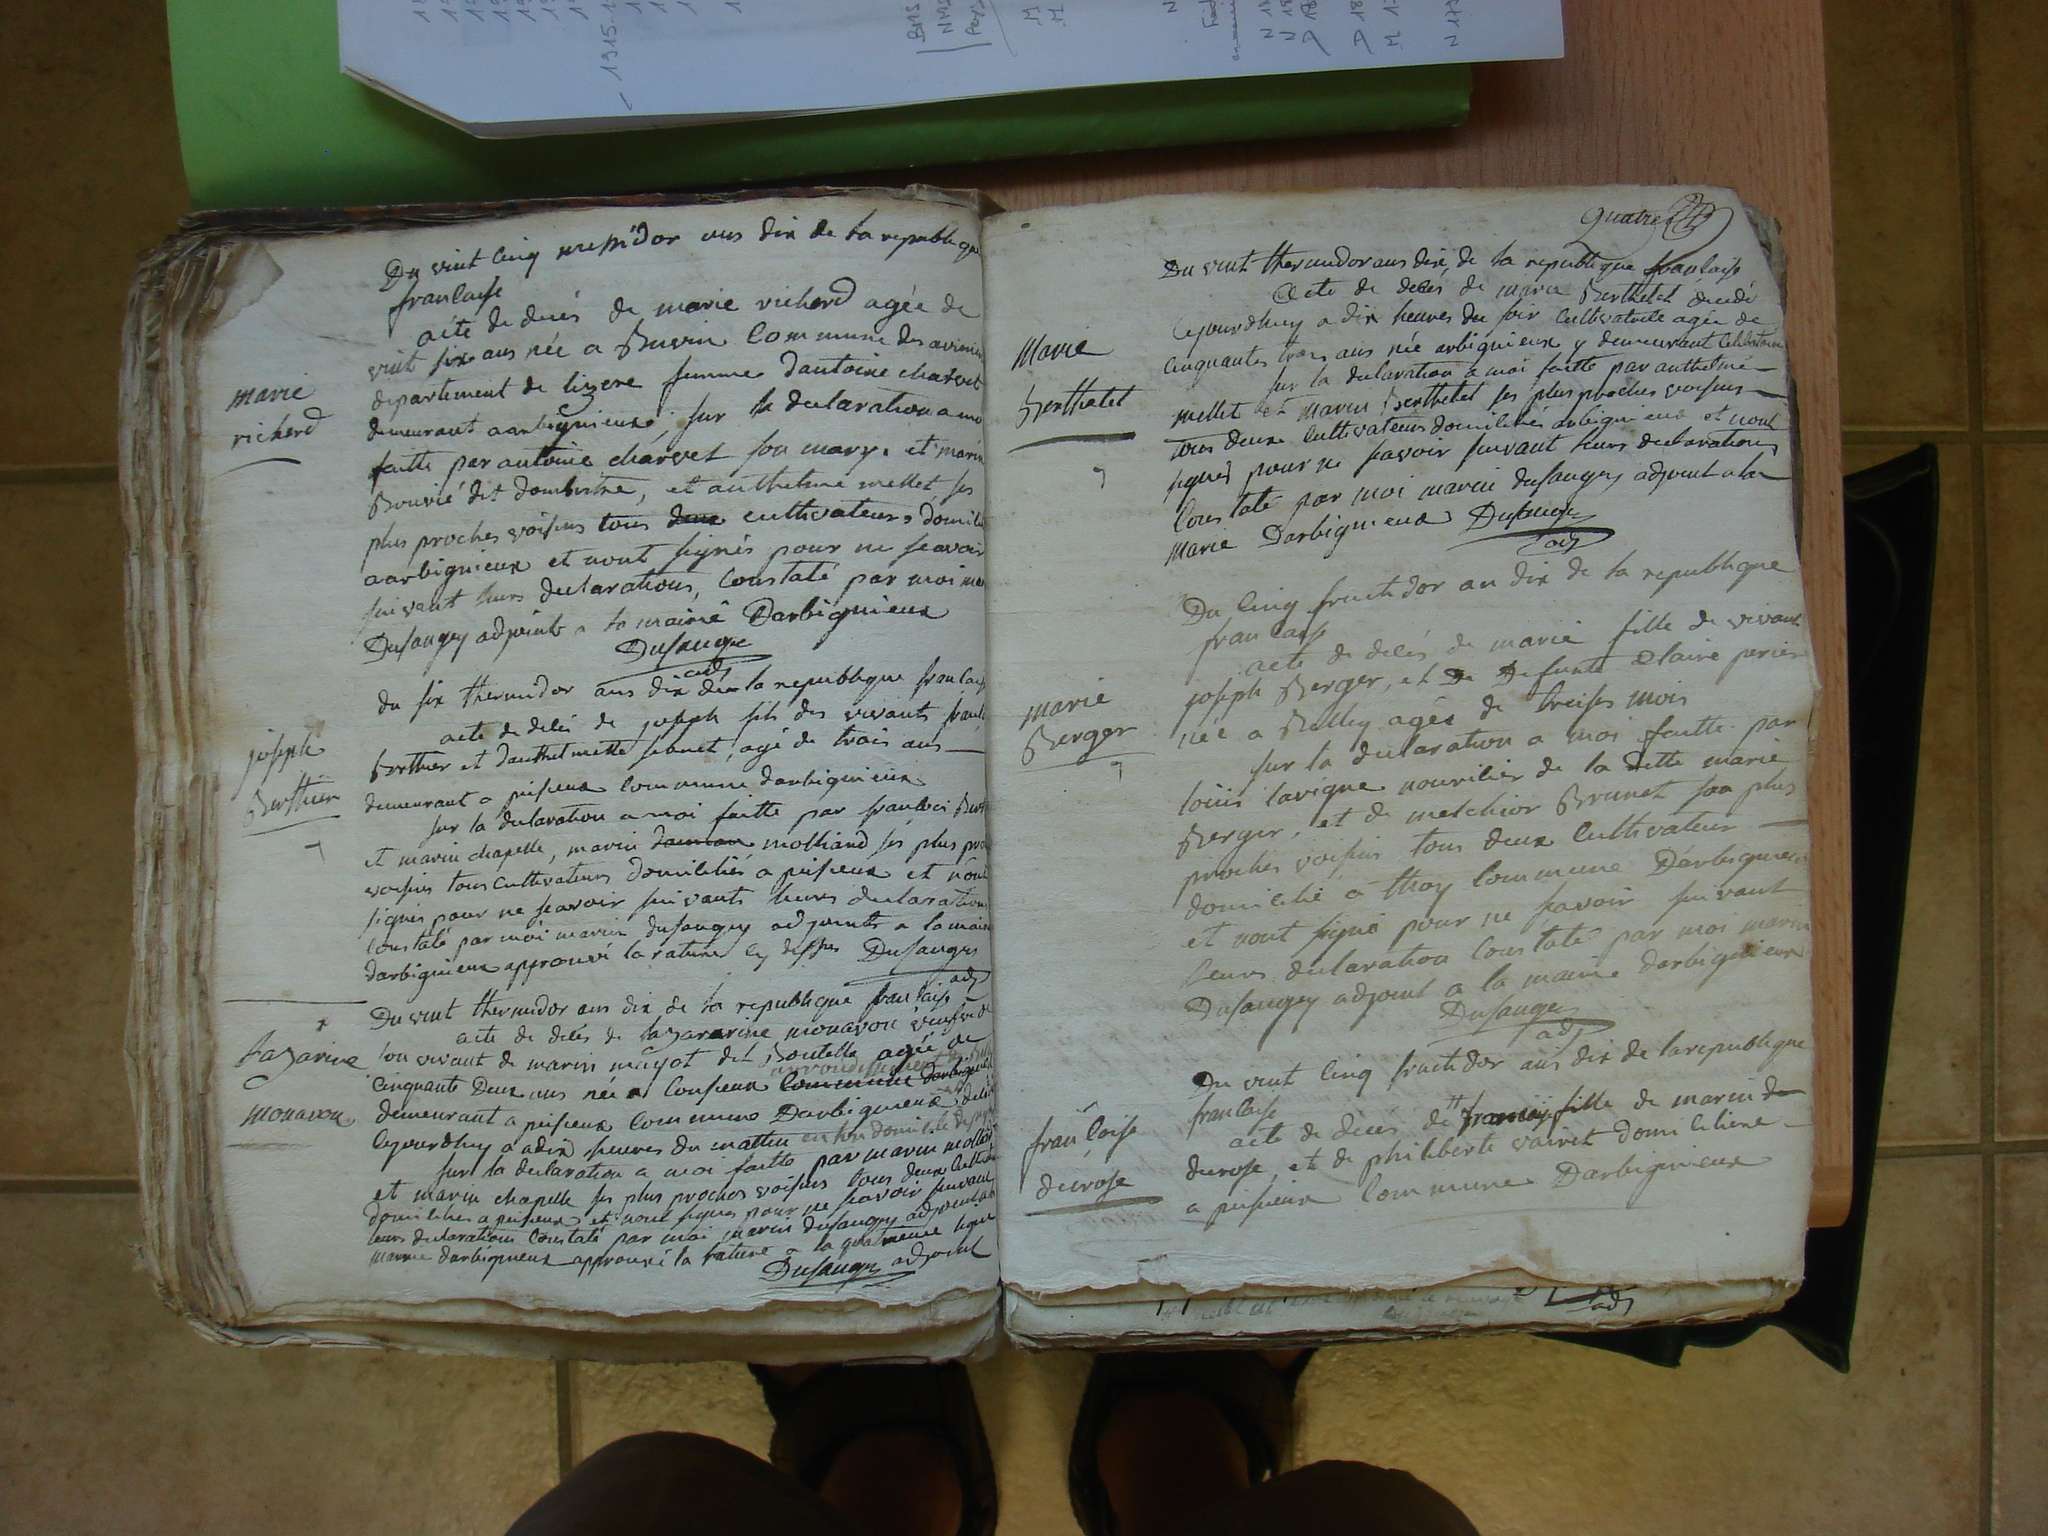 Du vint cinq messidor ans dix de la republique
francaise
acte de decés de marie richerd agée de
vint six ans née a Buvin Commune des avenieres
departement de lizere femme dantoine charvet
demeurant aarbignieux, sur la declaration a moi
faitte par antoine charvet son mary. et marin
Bouvié dit dombistne, et anthelme mellet ses
plus proches voisins tous deux cultivateurs domiliés
aarbignieux et nont signés pour ne scavoir
suivant leurs declarations, Constaté par moi marin
Dusaugey adjoint a la mairie Darbignieux
Dusauge
adj
marie
richerd
du six thermidor ans dix de la republique francaise
acte de décés de joseph fils des vivants francois
Berthier et danthelmette sebuet, agé de trois ans
demeurant a peisieux commune darbignieux
sur la declaration a moi faitte par francois Berthier
et marin chapelle, marin molliand ses plus proches
voisins tous cultivateurs domiciliés a peisieux et nont
signés pour ne scavoir suivants leurs declarations
constaté par moi marin dusaugey adjoints a la mairie
darbignieux approuvé la rature cy dessus Dusaugey
adj
joseph
Berthier
Du vint thermidor ans dix de la republique francaise
acte de décés de lazararine monavon veufve de
son vivant de marin mayot dit Boutelle agée de
arrondissement de
cinquante Deux ans née a Consieux commune darbignieux
demeurant a peisieux commune Darbignieux, decédé
cejourdhuy a adix heures du mattin en son domicile de
sur la declaration a moi faitte par marin molliand
et marin chapelle ses plus proches voisins tous deux cultivateurs
domiciliés a peisieux et nont signés pour ne scavoir suivant
leurs declarations Constaté par moi marin dusaugey adjoint a la
mairie darbignieux approuvé la rature a la quatrieme ligne
Dusaugey adjoint
lazarine
monavon
quatre
Du vint thermidor ans dix, de la republique francaise
Acte de decés de marie Berthelet decedé
cejourdhuy a dix heures du soir Cultivatrice agée de
cinquantes trois ans née arbignieux y demeurant Celibataire
sur la declaration a moi faitte par anthelme
mellet et marin Berthelet ses plus proches voisins
tous deux cultivateurs domiciliés arbignieux et nont
signés pour ne scavoir suivant leurs declarations
Constaté par moi marin dusaugey adjoint a la
Marie Darbignieux Dusaugey
adj
Marie
Berthelet
Du cinq fructidor an dix de la republique
francaise
acte de décés de marie fille de vivant
joseph Berger, et De Defunte Claire perier
née a Belley agée de treises mois
sur la declaration a moi faitte par
loüis lavigne nourricier de la Ditte marie
Berger, et de melchior Brunet son plus
proches voisins tous deux Cultivateur
domicilié a thoy Commune Darbignieux
et nont signé pour ne scavoir suivant
leurs declaration Constaté par moi marin
Dusaugey adjoint a la mairie darbignieux
Dusauge
adj
marie
Berger
Du vint cinq fructidor ans dix de la republique
francaise
acte de décés de francoise fille de marin du
ducrose, et de philiberte vairet domiciliene
a peisieux commune Darbignieux
francoise
ducrose